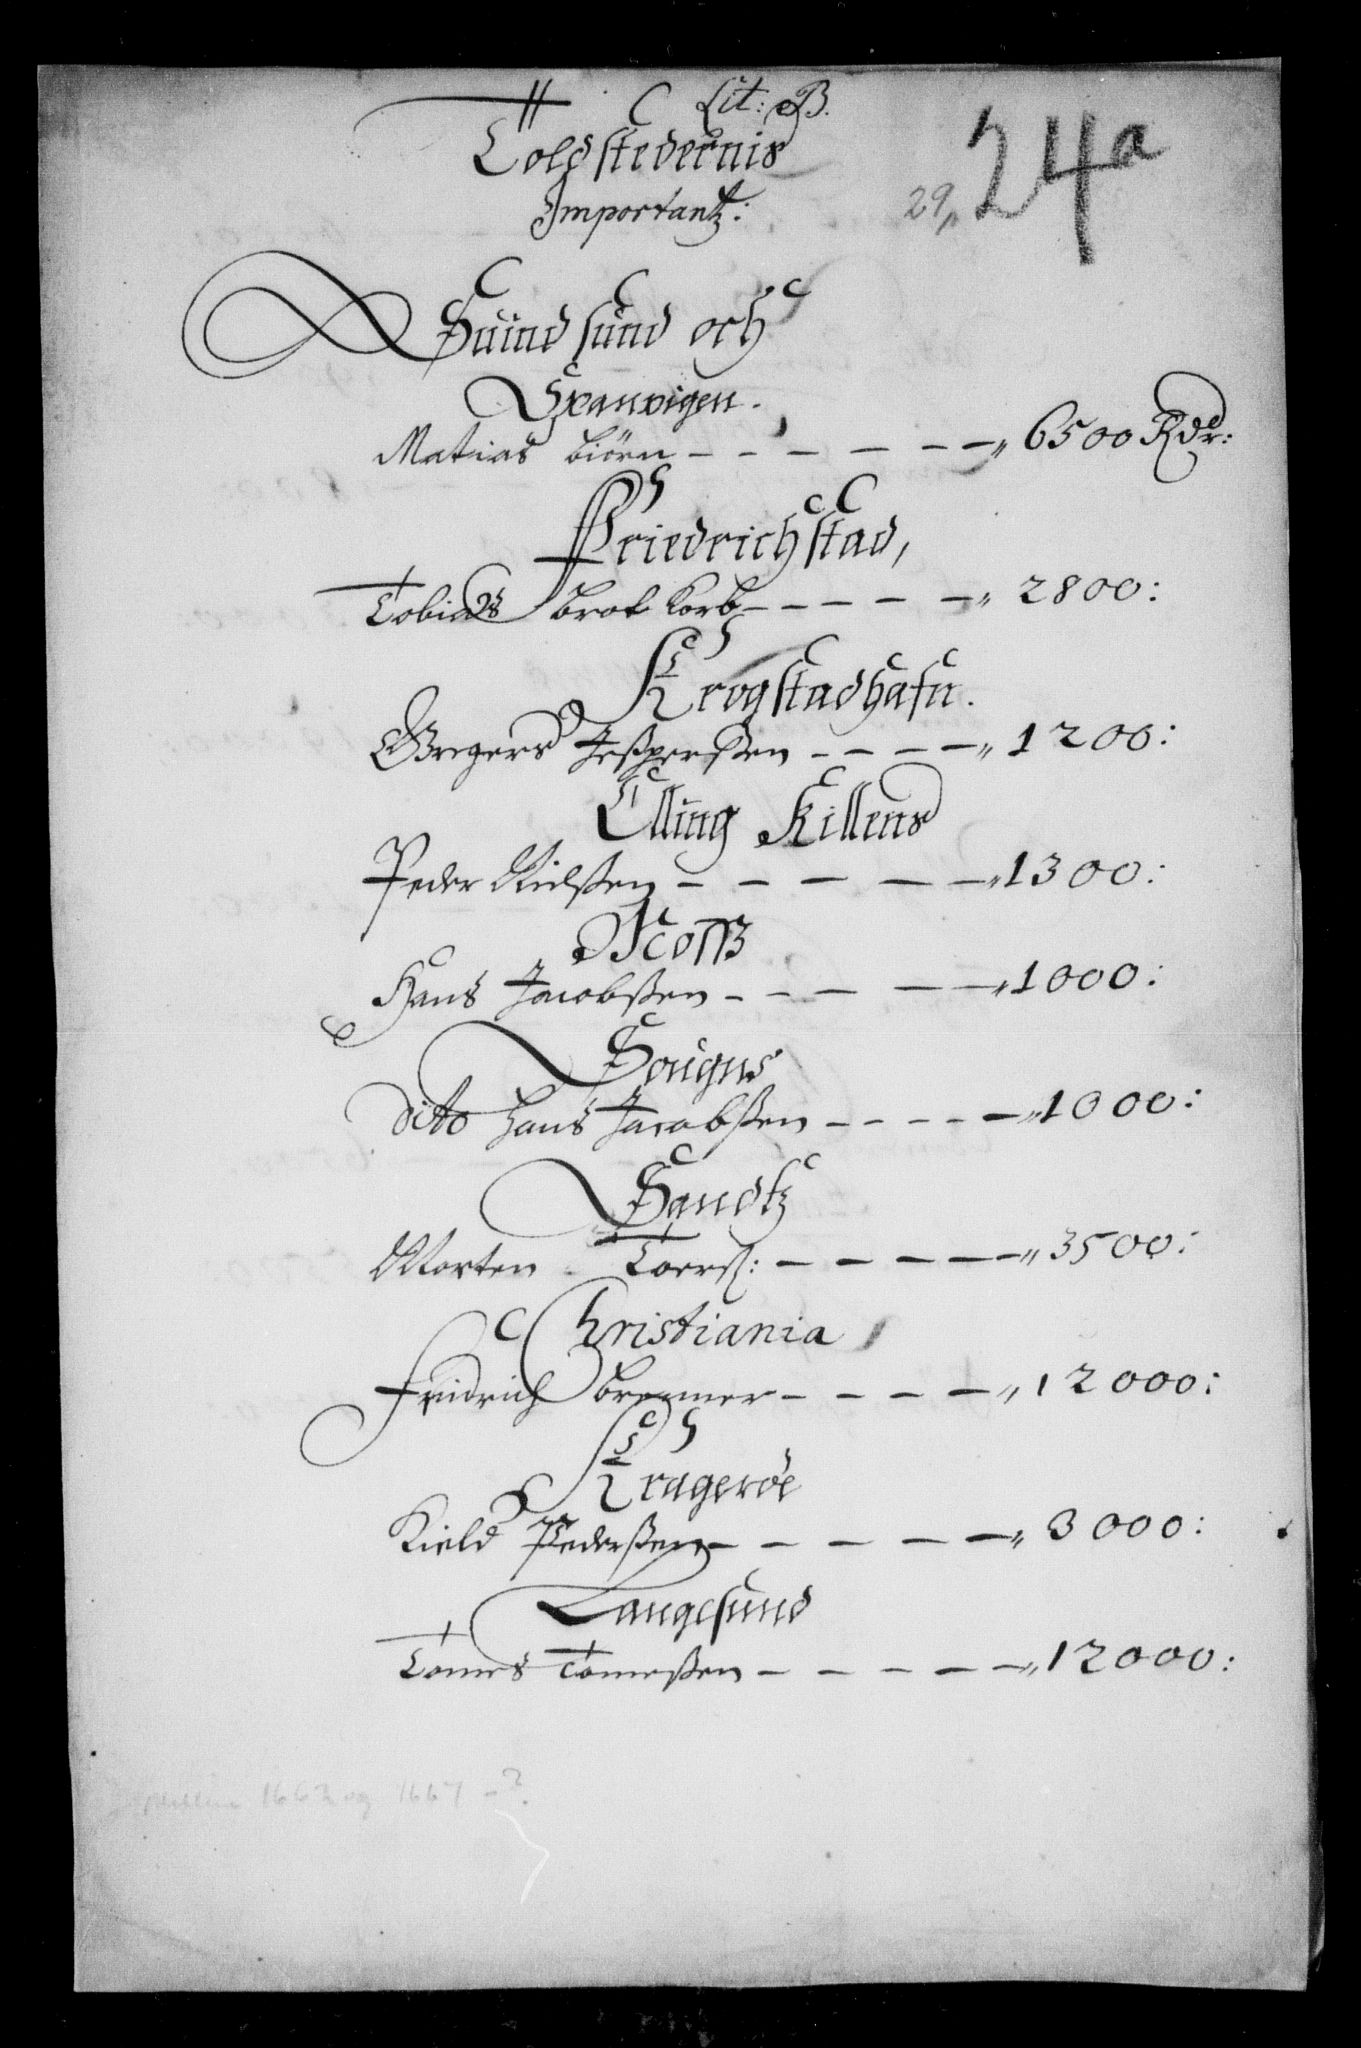 Lit: B.
Toldstedernis
Importantz:
29 24a
Suind sund och
Spanvigen.
Matias Biörn - - - - - - 6500 Rdr:
Friedrichstad,
Tobias Brokkorb - - - - - 2800:
Krogstadhafn.
Gregers Jesperßen - - - - 1200:
Elling Killens
Peder Nielßen - - - - - 1300:
Moss
Hans Jacobßen - - - - - 1000:
Sougns
Dito Hans Jacobßen - - - - - 1000:
Sandtz
Morten Toerß: - - - - - 3500:
Christiania
Fridrich Bremer - - - - - 12000:
Krageröe
Kield Pederßen - - - - - 3000:
Langesund
Tomes Tomeßen - - - - - 12000:
mellem 1662 og 1667 - ?